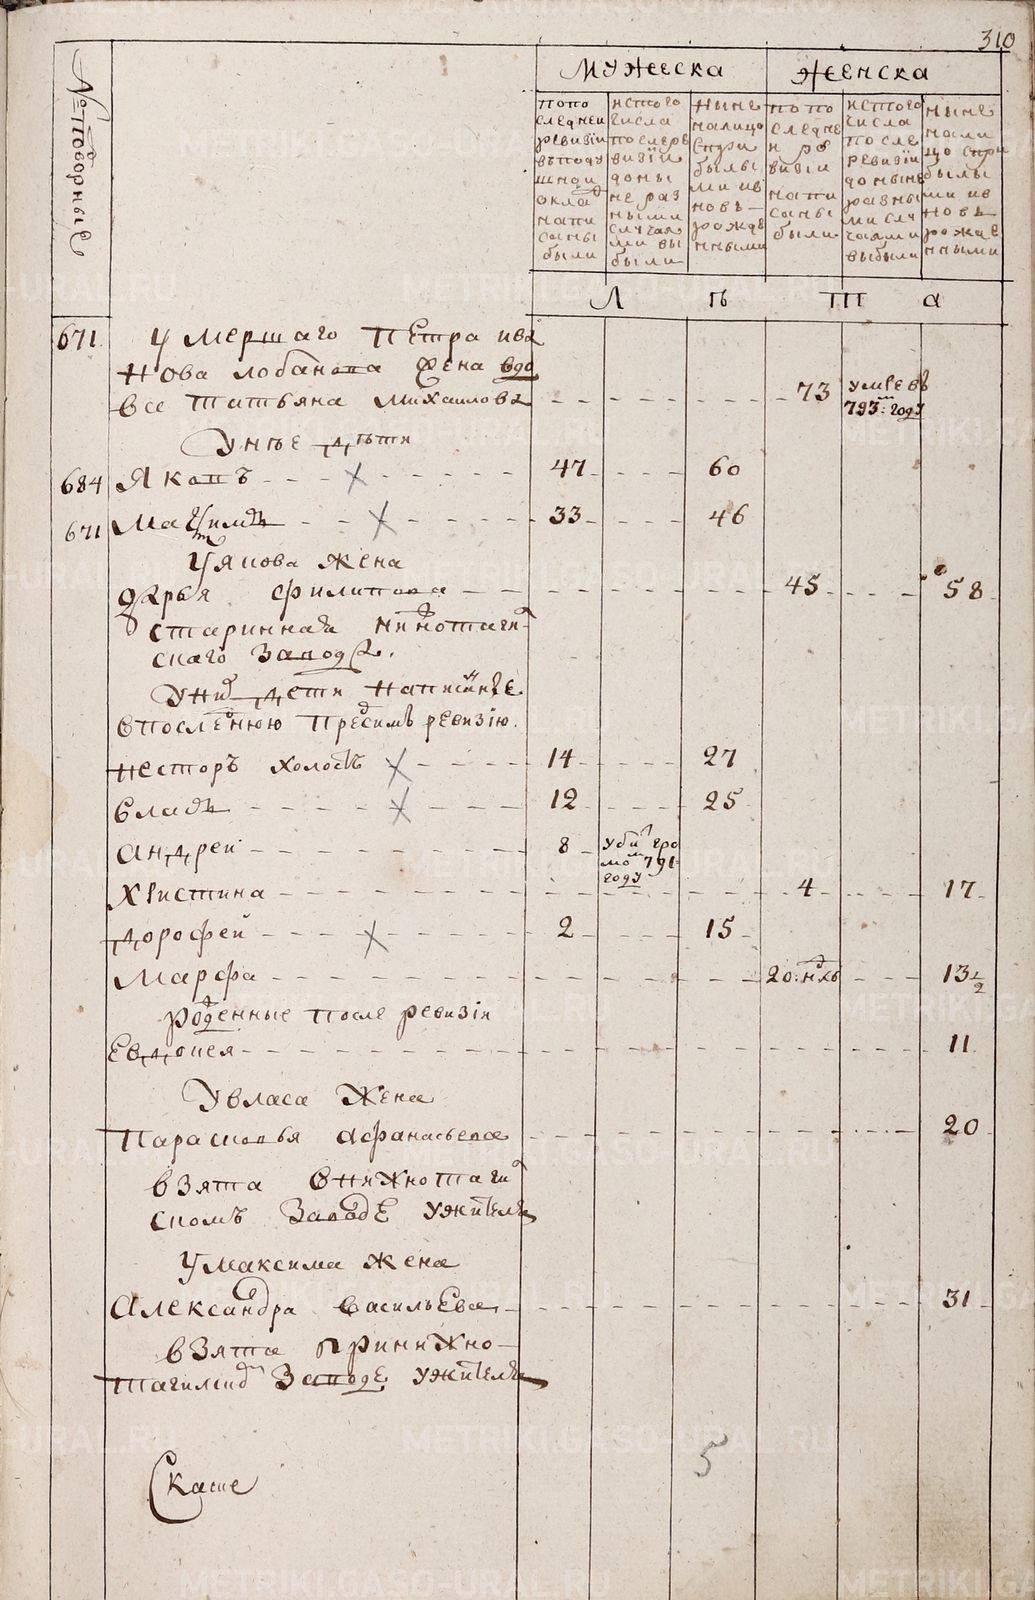 310
№ Подворные
Мужеска
Женска
по по
следнеи
ревизiи
въ поду
шнои
оклад
напи
саны
были
ис того
числа
после ре
визiи
до ны
не раз
ными
случая
ми вы
были
ныне
налицо
с при
былы
ми и в
новь
рожде
нными
по по
следне
и ре
визiи
напи
саны
были
ис того
числа
после
ревизiи
до ныне
разны
ми слу
чаями
выбыли
ныне
нали
цо с при
былы
ми и в
новь
рожде
нными
Л ѣ т а
671 Умершаго Петра Ива
нова Лобанова жена вдо
все Татьяна Михаилова 73 умре въ
793м году
У нѣе дѣти
684 Яковъ 47 60
671 Максимъ 33 46
У Якова жена
Дарья Филипова 45 58
старинная Нижнотагил
скаго завода.
У них дети написанные
в последнюю пред симъ ревизiю.
Несторъ холостъ 14 27
Власъ 12 25
Андреи 8 убит гро
мом 791
году
Хрiстина 4 17
Дорофеи 2 15
Марфа 20: нед 13 1/2
Рожденные после ревизiи
Евдокея 11
У Власа жена
Парасковья Афанасьева 20
взята в Нижнотагил
скомъ заводе у жителя
У Максима жена
Александра Васильева 31
взята при Нижно-
тагилском заводе у жителя
5